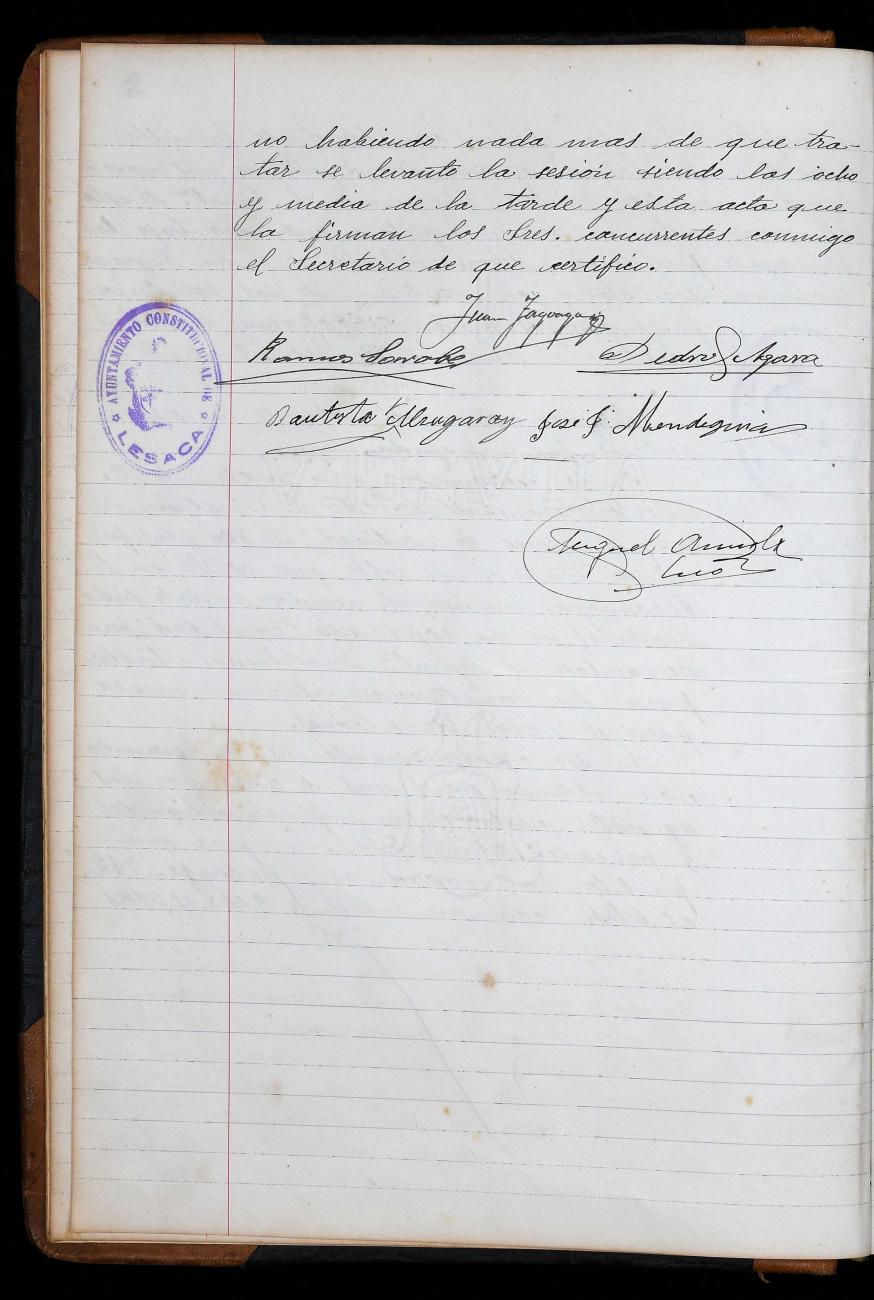 no habiendo nada mas de que tra-
tar se levanto la sesión siendo las ocho
y media de la tarde y esta acta que
la firman los Sres. concurrentes conmigo
el Secretario de que certifico.
Juan
Ramos Sarobe Pedro
Bautista José J. Mendeguia
Miguel
Srio
AYUNTAMIENTO CONSTITUCIONAL DE
LESACA